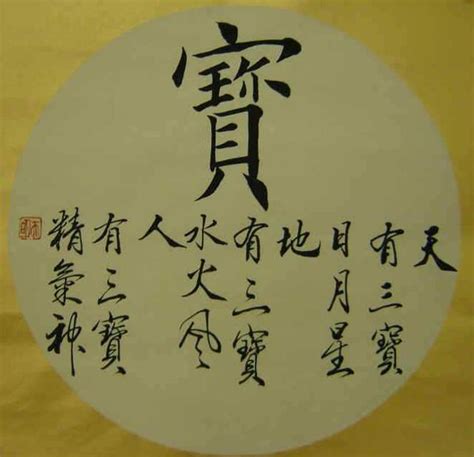 寶
天
有三寶
日月星
地
有三寶
水火風
人
有三寶
精氣神